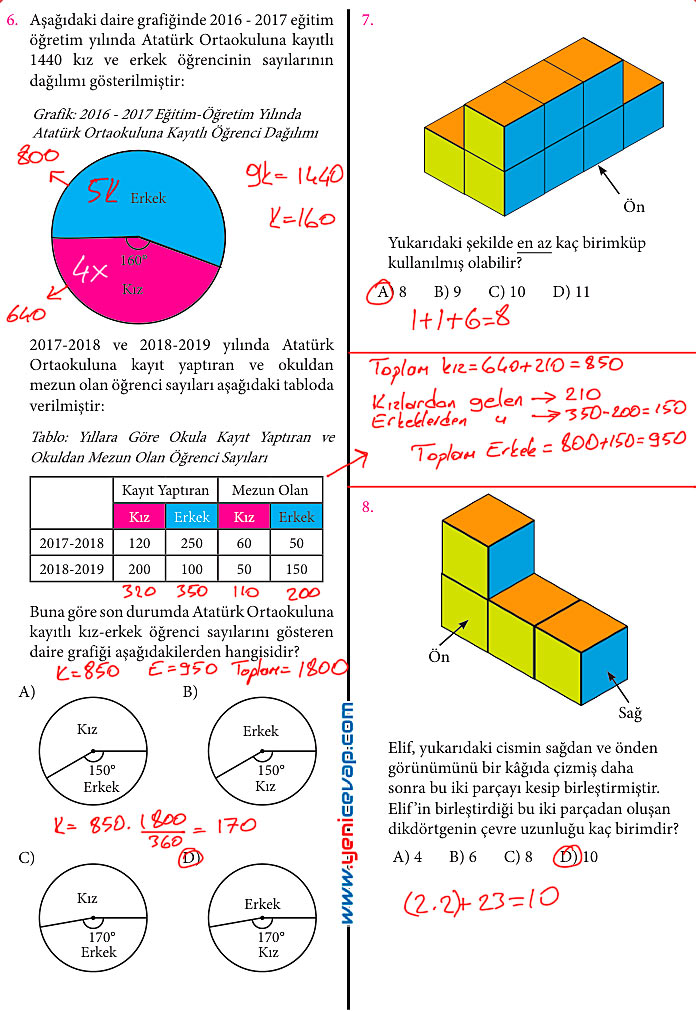 6. Aşağıdaki daire grafiğinde 2016 - 2017 eğitim
öğretim yılında Atatürk Ortaokuluna kayıtlı
1440 kız ve erkek öğrencinin sayılarının
dağılımı gösterilmiştir:
Grafik: 2016 - 2017 Eğitim-Öğretim Yılında
Atatürk Ortaokuluna Kayıtlı Öğrenci Dağılımı
800
5k Erkek
9k = 1440
k=160
160°
4x
Kız
640
2017-2018 ve 2018-2019 yılında Atatürk
Ortaokuluna kayıt yaptıran ve okuldan
mezun olan öğrenci sayıları aşağıdaki tabloda
verilmiştir:
Tablo: Yıllara Göre Okula Kayıt Yaptıran ve
Okuldan Mezun Olan Öğrenci Sayıları
Kayıt Yaptıran Mezun Olan
Kız Erkek Kız Erkek
2017-2018 120 250 60 50
2018-2019 200 100 50 150
320 350 110 200
Buna göre son durumda Atatürk Ortaokuluna
kayıtlı kız-erkek öğrenci sayılarını gösteren
daire grafiği aşağıdakilerden hangisidir?
K=850 E=950 Toplam=1800
A) Kız
150°
Erkek
B) Erkek
150°
Kız
K= 850. 1800/360 = 170
C) Kız
170°
Erkek
D) Erkek
170°
Kız
www.yenicevap.com
7.
Ön
Yukarıdaki şekilde en az kaç birimküp
kullanılmış olabilir?
A) 8 B) 9 C) 10 D) 11
1+1+6=8
Toplam kız=640+210=850
Kızlardan gelen → 210
Erkeklerden " → 350-200=150
Toplam Erkek = 800+150=950
8.
Ön
Sağ
Elif, yukarıdaki cismin sağdan ve önden
görünümünü bir kâğıda çizmiş daha
sonra bu iki parçayı kesip birleştirmiştir.
Elif'in birleştirdiği bu iki parçadan oluşan
dikdörtgenin çevre uzunluğu kaç birimdir?
A) 4 B) 6 C) 8 D) 10
(2.2)+ 23=10